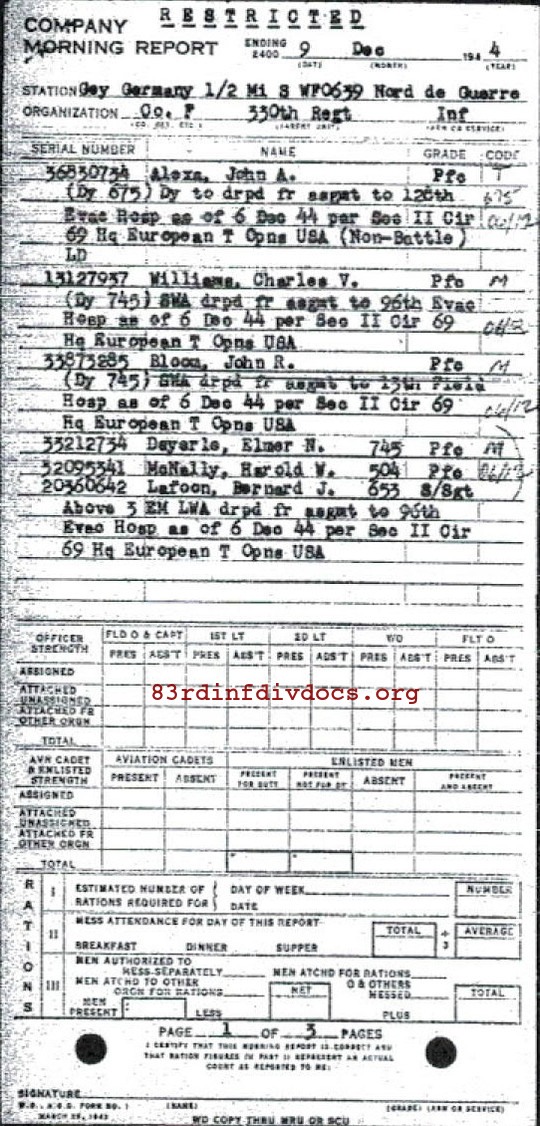 RESTRICTED
COMPANY
MORNING REPORT ENDING 2400 9 Dec 194 4
(DAY) (MONTH) (YEAR)
STATION Gey Germany 1/2 Mi S WF0639 Nord de Guerre
ORGANIZATION Co. F 330th Regt Inf
SERIAL NUMBER NAME GRADE CODE
36830734 Alexa, John A. Pfc T
(Dy 675) Dy to drpd fr asgmt to 128th 675
Evac Hosp as of 6 Dec 44 per Sec II Cir
69 Hq European T Opns USA (Non-Battle)
LD
13127937 Williams, Charles V. Pfc M
(Dy 745) SWA drpd fr asgmt to 96th Evac
Hosp as of 6 Dec 44 per Sec II Cir 69
Hq European T Opns USA
33873285 Bloom, John R. Pfc M
(Dy 745) SWA drpd fr asgmt to 13th Field
Hosp as of 6 Dec 44 per Sec II Cir 69
Hq European T Opns USA
33212734 Dayerle, Elmer N. 745 Pfc M
32095341 McNally, Harold W. 504 Pfc
20360642 Lafoon, Bernard J. 653 S/Sgt
Above 3 EM LWA drpd fr asgmt to 96th
Evac Hosp as of 6 Dec 44 per Sec II Cir
69 Hq European T Opns USA
OFFICER STRENGTH FLD O & CAPT 1ST LT 2D LT WO FLT O
PRES ABS'T PRES ABS'T PRES ABS'T PRES ABS'T PRES ABS'T
ASSIGNED
ATTACHED UNASSIGNED
83rdinfdivdocs.org
ATTACHED FR OTHER ORGN
TOTAL
AVN CADET & ENLISTED STRENGTH AVIATION CADETS ENLISTED MEN
PRESENT ABSENT PRESENT FOR DUTY PRESENT NOT FOR DY ABSENT PRESENT AND ABSENT
ASSIGNED
ATTACHED UNASSIGNED
ATTACHED FR OTHER ORGN
TOTAL
RATIONS
I ESTIMATED NUMBER OF RATIONS REQUIRED FOR DAY OF WEEK DATE NUMBER
II MESS ATTENDANCE FOR DAY OF THIS REPORT TOTAL ÷ 3 AVERAGE
BREAKFAST DINNER SUPPER
III MEN AUTHORIZED TO MESS SEPARATELY MEN ATCHD FOR RATIONS
MEN ATCHD TO OTHER ORGN FOR RATIONS NET O & OTHERS MESSED TOTAL
MEN PRESENT LESS PLUS
PAGE 1 OF 3 PAGES
I CERTIFY THAT THIS MORNING REPORT IS CORRECT AND
THAT RATION FIGURES IN PART II REPRESENT AN ACTUAL
COUNT AS REPORTED TO ME:
SIGNATURE
W.D., A.G.O. FORM NO. 1 (NAME) (GRADE) (ARM OR SERVICE)
MARCH 25, 1943
WD COPY THRU MRU OR SCU